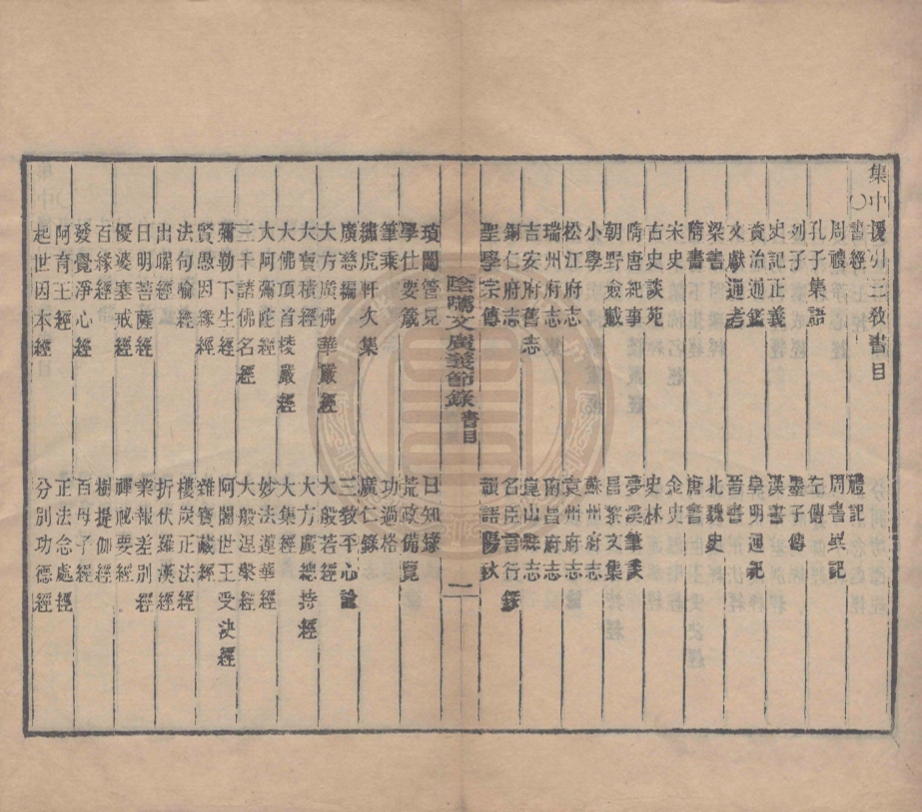 集中援引三教書目
〇書經　禮記
周禮　周書異記
孔子集語　左傳
列子　墨子傳
史記正義　漢書
資治通鑑　皇明通記
文獻通考　晉書
梁書　北魏史
隋書　唐書
宋史　金史
古史談苑　史林
隋唐紀事　夢溪筆談
朝野僉載　昌黎文集
小學　蘇州府志
松江府志　袁州府志
瑞州府志　南昌府志
吉安府舊志　崑山縣志
銅仁府志　名臣言行錄
聖學宗傳　韻語陽秋
陰隲文廣義節錄　書目　一
瑣闥管見　日知錄
學仕要箴　荒政備覽
筆乘　功過格
繡虎軒次集　廣仁錄
廣慈編　三教平心論
大方廣佛華嚴經　大般若經
大寶積經　大方廣總持經
大佛頂首楞嚴經　大集經
大阿彌陀經　妙法蓮華經
三千諸佛名經　大般涅槃經
彌勒下生經　阿闍世王受決經
賢愚因緣經　雜寶藏經
法句喻經　樓炭正法經
出曜經　折伏羅漢經
日明菩薩經　業報差別經
優婆塞戒經　禪祕要經
百緣經　樹提伽經
發覺淨心經　百母子經
阿育王經　正法念處經
起世因本經　分別功德經